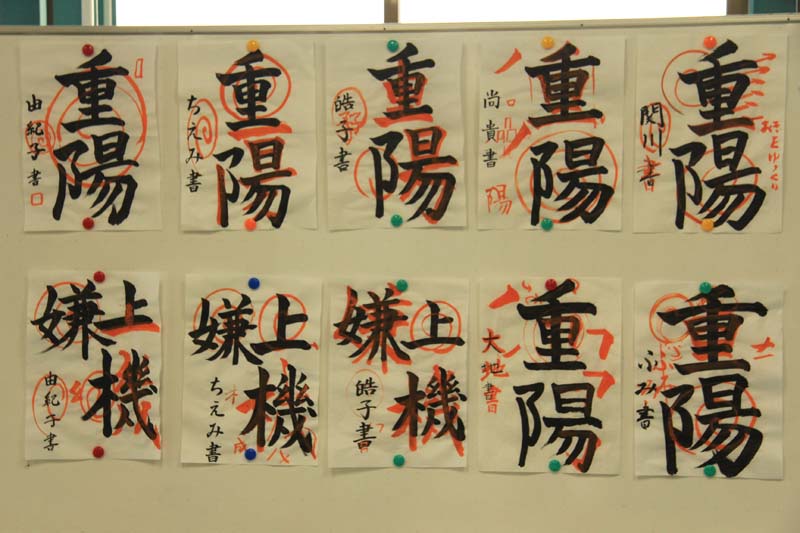 重陽
由紀子書
重陽
ちえみ書
重陽
皓子書
重陽
尚貴書
陽
重陽
関川書
上機
嫌
由紀子書
上機
嫌
ちえみ書
上機
嫌
皓子書
重陽
大地書
重陽
ふみ書